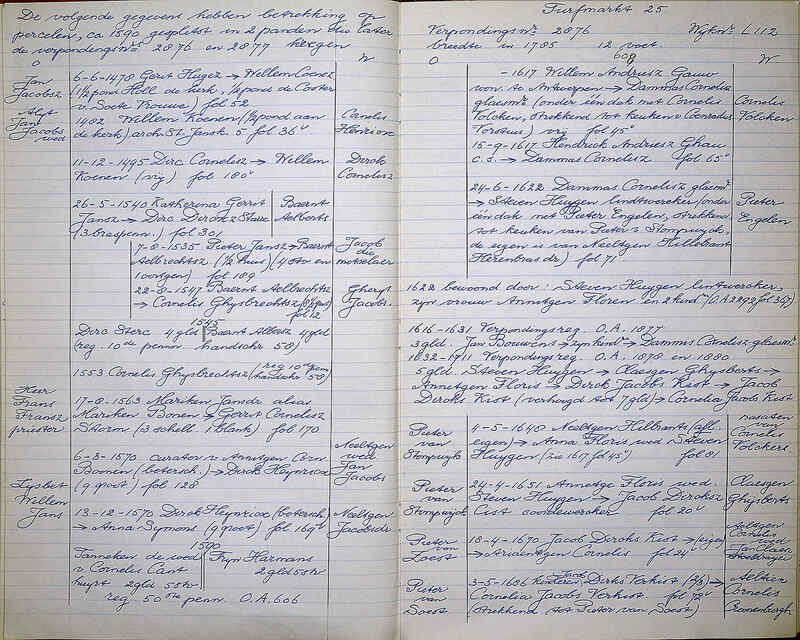 De volgende gegevens hebben betrekking op
percelen, ca 1590 gesplitst in 2 panden die later
de verpondingsnrs 2876 en 2877 kregen
O W
Jan
Jacobsz
6-6-1478 Gerit Hugez → Willem Coenez
(1/2 pond Holl de kerk, 1/2 pond de Coster
v Soete Vrouwe) fol 52
Alyt
Jan
Jacobs
wed
1482 Willem Koenen (1/2 pond aan
de kerk) arch. St. Jansk. 5 fol 36v
Canelis
Henricx
11-12-1495 Dirc Cornelisz → Willem
Koenen (vrij) fol 180v
Dirck
Cornelisz
26-5-1540 Katherina Gerrit
Jansz → Dirc Dircxz
(3 braspenn.) fol 301
Baernt
Aelberts
7-8-1535 Pieter Jansz → Baernt
Aelbrechtsz (1/2 huis) (4 sto en
1 oortgen) fol 189
Jacob
die
metselaer
22-8-1547 Baernt Aelbrechtsz
→ Cornelis Ghysbrechtsz
fol 12
Gheryt
Jacobs.
1545
Dirc Sterc 4 glds Baent Albertz 4 gld
(reg. 10de penn. handschr 58)
1553 Cornelis Ghysbrechtsz (reg 10de penn
handschr 58)
Heer
Frans
Fransz
priester
17-8-1563 Mariken Jansdr alias
Mariken Bonen → Gerrit Cornelisz
Storm (3 schell. 1 blank) fol 170
6-3-1570 curator v Annetgen Corn
Bomen (betersch.) → Dirck Heynricx
(9 groot) fol 128
Neeltgen
wed
Jan
Jacobs
Lysbet
Willem
Jans
13-12-1570 Dirck Heynricx (betersch)
→ Anna Symons (9 groot) fol 169v
Neeltgen
Jacobsdr
1590
Tanneken de wed
v Cornelis Cant
huyst 2 gld 5 str
Tryn Harmans
2 gld 5 str
reg. 50ste penn. O.A. 606
Turfmarkt 25
Verpondingsnr 2876 Wijknr L 112
breedte in 1785 12 voet.
O W
608
-1617 Willem Andriesz Gauw
won. te Antwerpen → Dammas Cornelisz
glaesmr (onder één dak met Cornelis
Tolcken, strekkend tot keuken v Coenradus
Torsius) vrij fol 45v
Cornelis
Tolcken
15-9-1617 Hendrick Andriesz Ghau
c.s. → Dammas Cornelisz fol 65v
24-6-1622 Dammas Cornelisz glaesmr
→ Steven Huygen lindtwercker (onder
één dak met Pieter Engelen, strekkend
tot keuken van Pieter v Stompwyck,
de eigen is van Neeltgen Hillebrant
Florentius dr) fol 71
Pieter
Engelen
1622 bewoond door: Steven Huygen lintwercker,
zyn vrouw Annetgen Floren en 2 kindn (O.A. 2292 fol 367)
1616-1631 Verpondingsreg. O.A. 1877
3 gld. Jan Bouwens → zyn kindn → Dammis Cornelisz glaesmr
1632-1711 Verpondingsreg. O.A. 1878 en 1880
5 gld. Steven Huygen → Claesgen Ghysberts →
Annetgen Floris → Dirck Jacobs Kist → Jacob
Dircks Kist (verhoogd tot 7 gld) → Cornelia Jacobs Kist
Pieter
van
Stompwyk
4-5-1640 Neeltgen Hilbrants (afl.
eigen) → Anna Floris wed v Steven
Huygen (zie 1617 fol 45v) fol 81
nasaten
van
Cornelis
Tolckers.
Pieter
van
Stompwyck
24-4-1651 Annetge Floris wed.
Steven Huygen → Jacob Dircksz
Cist coordewercker fol 20v
Claesgen
Ghysberts
Pieter
van
Zoest
18-4-1670 Jacob Dircks Kist → (eigen)
→ Ariaentgen Cornelis fol 24v
Aeltgen
Cornelis
wed
Jan Claesz
Pieter
van
Soest
3-5-1686 kinderen Jacob Dircks Verkist (3/4) →
Cornelia Jacobs Verkist. fol 78v
(strekkend tot Pieter van Soest)
Aeltien
Cornelis
Cranenburgh